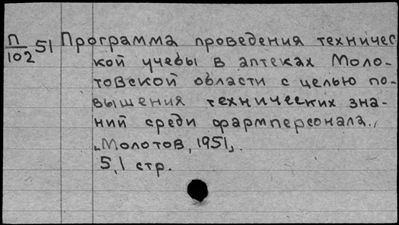 П/102 51 Программа проведения техничес
кой учебы в аптеках Моло-
товской области с целью по-
вышения технических зна-
ний среди фармперсонала.,
„Молотов, 1951„.
5,1 стр.